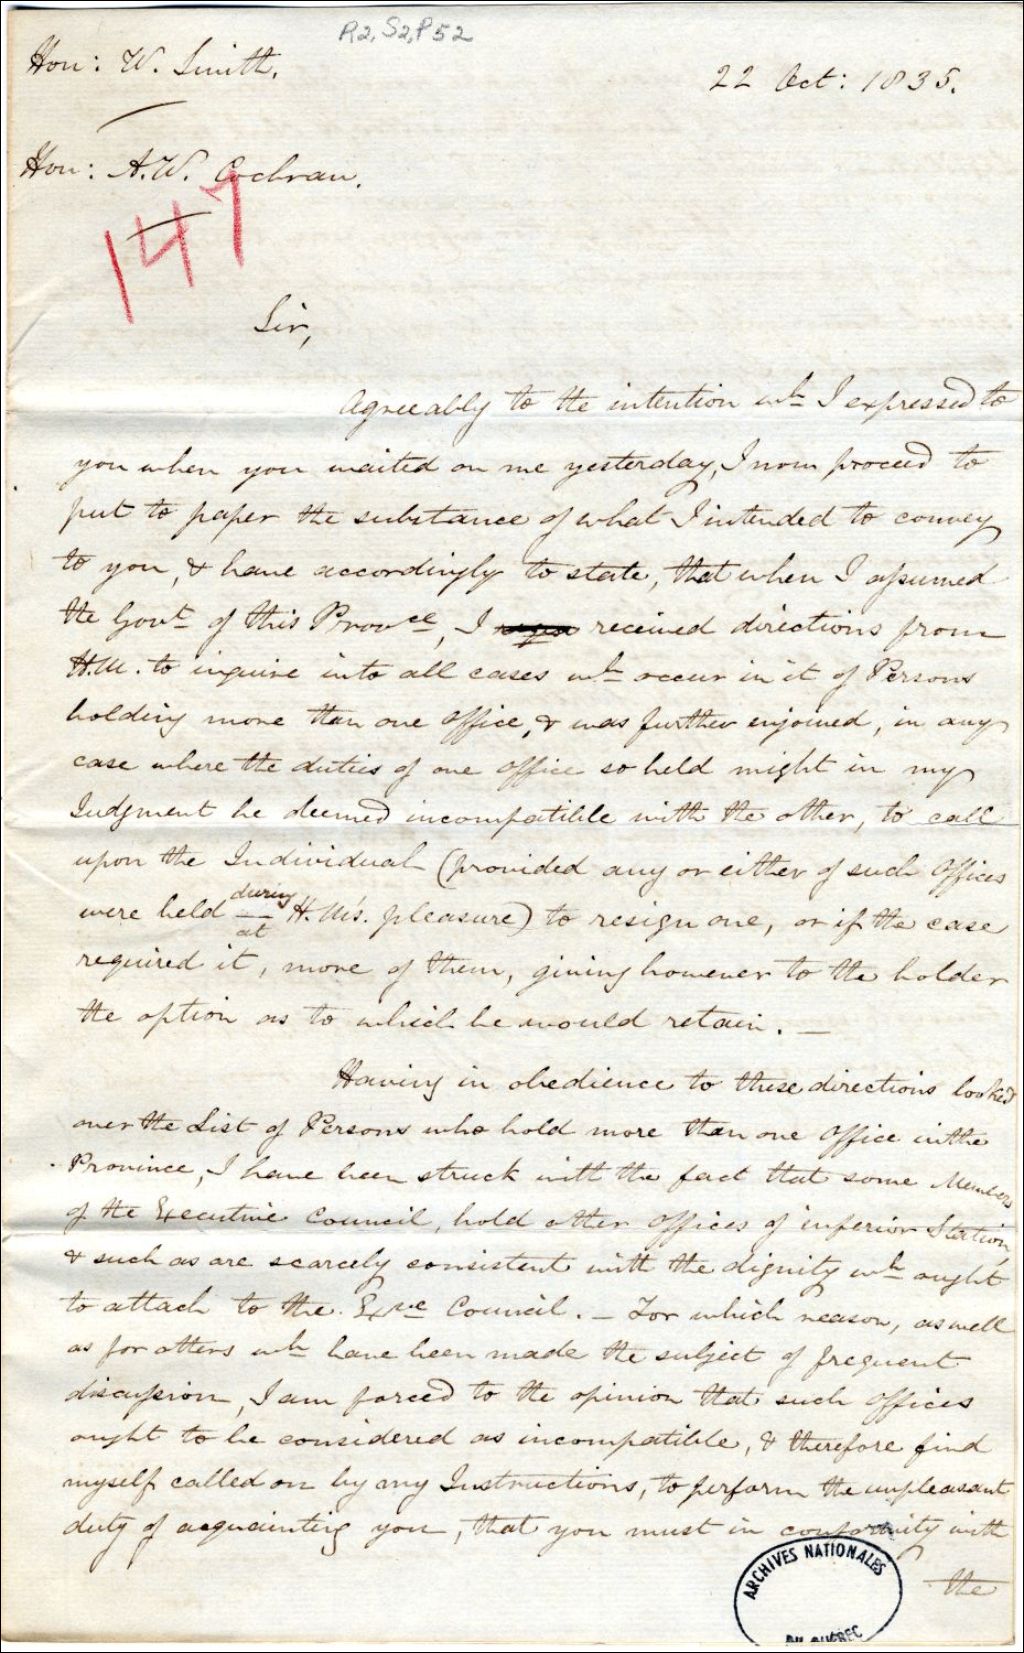 R2, S2, P52
Hon: W. Smith.
22 Oct: 1835.
Hon: A.W. Cochran.
147
Sir,
Agreeably to the intention wh I expressed to
you when you waited on me yesterday, I now proceed to
put to paper the substance of what I intended to convey
to you, & have accordingly to state, that when I assumed
the Govt of this Provce, I received directions from
H.M. to inquire into all cases wh occur in it of Persons
holding more than one office, & was further enjoined, in any
case where the duties of one office so held might in my
Judgment be deemed incompatible with the other, to call
upon the Individual (provided any or either of such Offices
were held during at H.M's. pleasure) to resign one, or if the case
required it, more of them, giving however to the holder
the option as to which he would retain. —
Having in obedience to these directions looked
over the List of Persons who hold more than one Office in the
Province, I have been struck with the fact that some Members
of the Executive Council, hold other Offices of inferior Station,
& such as are scarcely consistent with the dignity wh ought
to attach to the Exve Council. — For which reason, as well
as for others wh have been made the subject of frequent
discussion, I am forced to the opinion that such Offices
ought to be considered as incompatible, & therefore find
myself called on by my Instructions, to perform the unpleasant
duty of acquainting you, that you must in conformity with
the
ARCHIVES NATIONALES
DU QUÉBEC